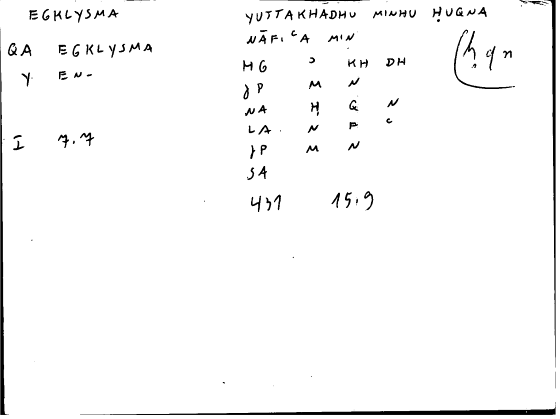 EGKLYSMA
QA EGKLYSMA
Y EN-
I 7.7
YUTTAKHĀDHU MINHU ḤUQNA
NĀFIʿA MIN
ḥqn
HG ʾ KH DH
JP M N
NA Ḥ Q N
LA N F ʿ
JP M N
SA
431 15.9